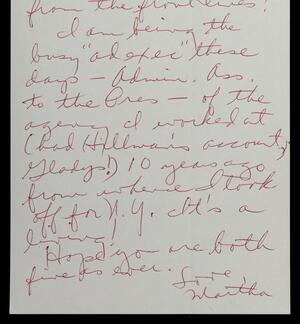 from the front lines!
I am being the
busy "ad exec" these
days – Admin. Ass.
to the Pres – of the
agency I worked at
(had Hillman's account,
Gladys!) 10 years ago
from whence I took
off for N.Y. It's a
living.
Hope you are both
fine as ever.
Love,
Martha